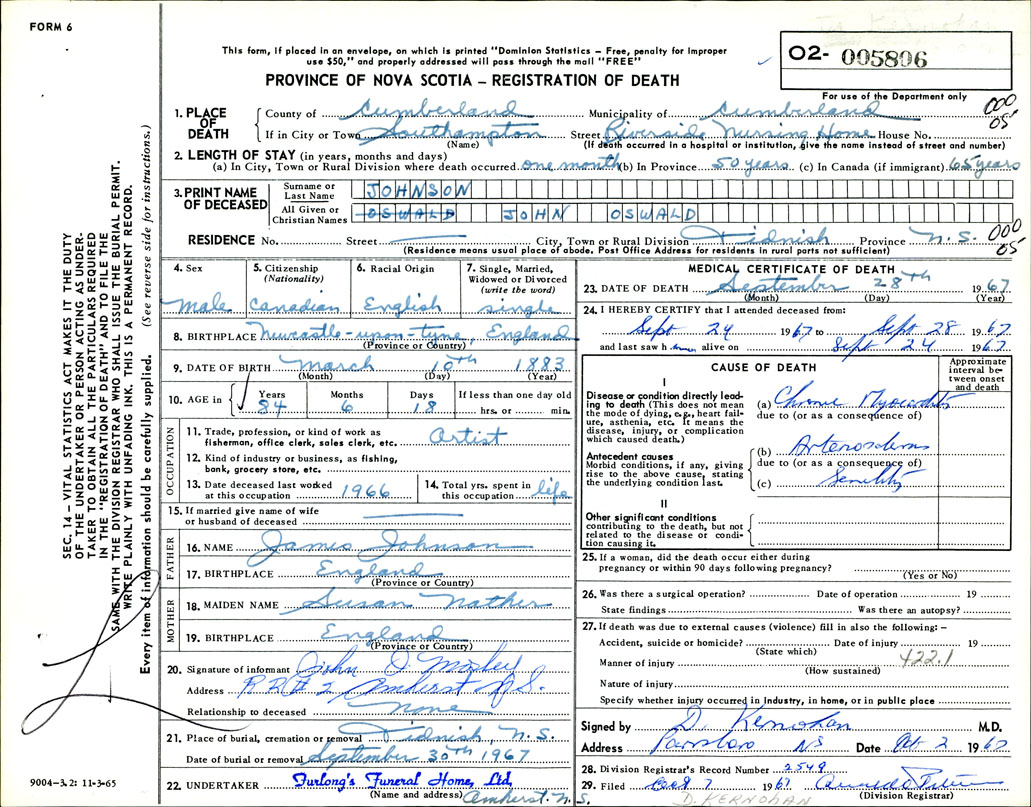 FORM 6
This form, if placed in an envelope, on which is printed "Dominion Statistics – Free, penalty for improper
use $50," and properly addressed will pass through the mail "FREE"
PROVINCE OF NOVA SCOTIA – REGISTRATION OF DEATH
02- 005806
For use of the Department only
000
05
1. PLACE OF DEATH
County of Cumberland Municipality of Cumberland
If in City or Town Southampton Street Riverside Nursing Home House No.
(Name) (If death occurred in a hospital or institution, give the name instead of street and number)
2. LENGTH OF STAY (in years, months and days)
(a) In City, Town or Rural Division where death occurred one month (b) In Province 50 years (c) In Canada (if immigrant) 65 years
3. PRINT NAME OF DECEASED
Surname or Last Name JOHNSON
All Given or Christian Names OSWALD JOHN OSWALD
RESIDENCE No. Street City, Town or Rural Division Tidnish Province N.S.
000
05
(Residence means usual place of abode. Post Office Address for residents in rural parts not sufficient)
4. Sex
male
5. Citizenship
(Nationality)
Canadian
6. Racial Origin
English
7. Single, Married,
Widowed or Divorced
(write the word)
single
8. BIRTHPLACE Newcastle-upon-tyne, England
(Province or Country)
9. DATE OF BIRTH March 10th 1883
(Month) (Day) (Year)
10. AGE in
Years 84
Months 6
Days 18
If less than one day old
hrs. or min.
OCCUPATION
11. Trade, profession, or kind of work as
fisherman, office clerk, sales clerk, etc. Artist
12. Kind of industry or business, as fishing,
bank, grocery store, etc.
13. Date deceased last worked
at this occupation 1966
14. Total yrs. spent in
this occupation life
15. If married give name of wife
or husband of deceased
FATHER
16. NAME James Johnson
17. BIRTHPLACE England
(Province or Country)
MOTHER
18. MAIDEN NAME Susan Nather
19. BIRTHPLACE England
(Province or Country)
20. Signature of informant John O. Morley
Address RR#2 Amherst N.S.
Relationship to deceased none
21. Place of burial, cremation or removal Tidnish N.S.
Date of burial or removal September 30th 1967
22. UNDERTAKER Furlong's Funeral Home, Ltd.
(Name and address) Amherst, N.S.
MEDICAL CERTIFICATE OF DEATH
23. DATE OF DEATH September 28th 1967
(Month) (Day) (Year)
24. I HEREBY CERTIFY that I attended deceased from:
Sept 24 1967 to Sept 28 1967
and last saw him alive on Sept 24 1967
CAUSE OF DEATH
Approximate
interval be-
tween onset
and death
I
Disease or condition directly lead-
ing to death (This does not mean
the mode of dying, e.g., heart fail-
ure, asthenia, etc. It means the
disease, injury, or complication
which caused death.)
(a) Chronic Myocarditis
due to (or as a consequence of)
Antecedent causes
Morbid conditions, if any, giving
rise to the above cause, stating
the underlying condition last.
(b) Arteriosclerosis
due to (or as a consequence of)
(c) Senility
II
Other significant conditions
contributing to the death, but not
related to the disease or condi-
tion causing it.
25. If a woman, did the death occur either during
pregnancy or within 90 days following pregnancy?
(Yes or No)
26. Was there a surgical operation? Date of operation 19
State findings Was there an autopsy?
27. If death was due to external causes (violence) fill in also the following: –
Accident, suicide or homicide? Date of injury 19
(State which)
422.1
Manner of injury
(How sustained)
Nature of injury
Specify whether injury occurred in industry, in home, or in public place
Signed by D. Kernohan M.D.
Address Parrsboro NS Date Oct 2 1967
28. Division Registrar's Record Number 2549
29. Filed Oct 7 1967
(Division Registrar)
D. KERNOHAN
SEC. 14 – VITAL STATISTICS ACT MAKES IT THE DUTY
OF THE UNDERTAKER OR PERSON ACTING AS UNDER-
TAKER TO OBTAIN ALL THE PARTICULARS REQUIRED
IN THE "REGISTRATION OF DEATH" AND TO FILE THE
SAME WITH THE DIVISION REGISTRAR WHO SHALL ISSUE THE BURIAL PERMIT.
WRITE PLAINLY WITH UNFADING INK. THIS IS A PERMANENT RECORD.
Every item of information should be carefully supplied. (See reverse side for instructions.)
9004-3.2: 11-3-65